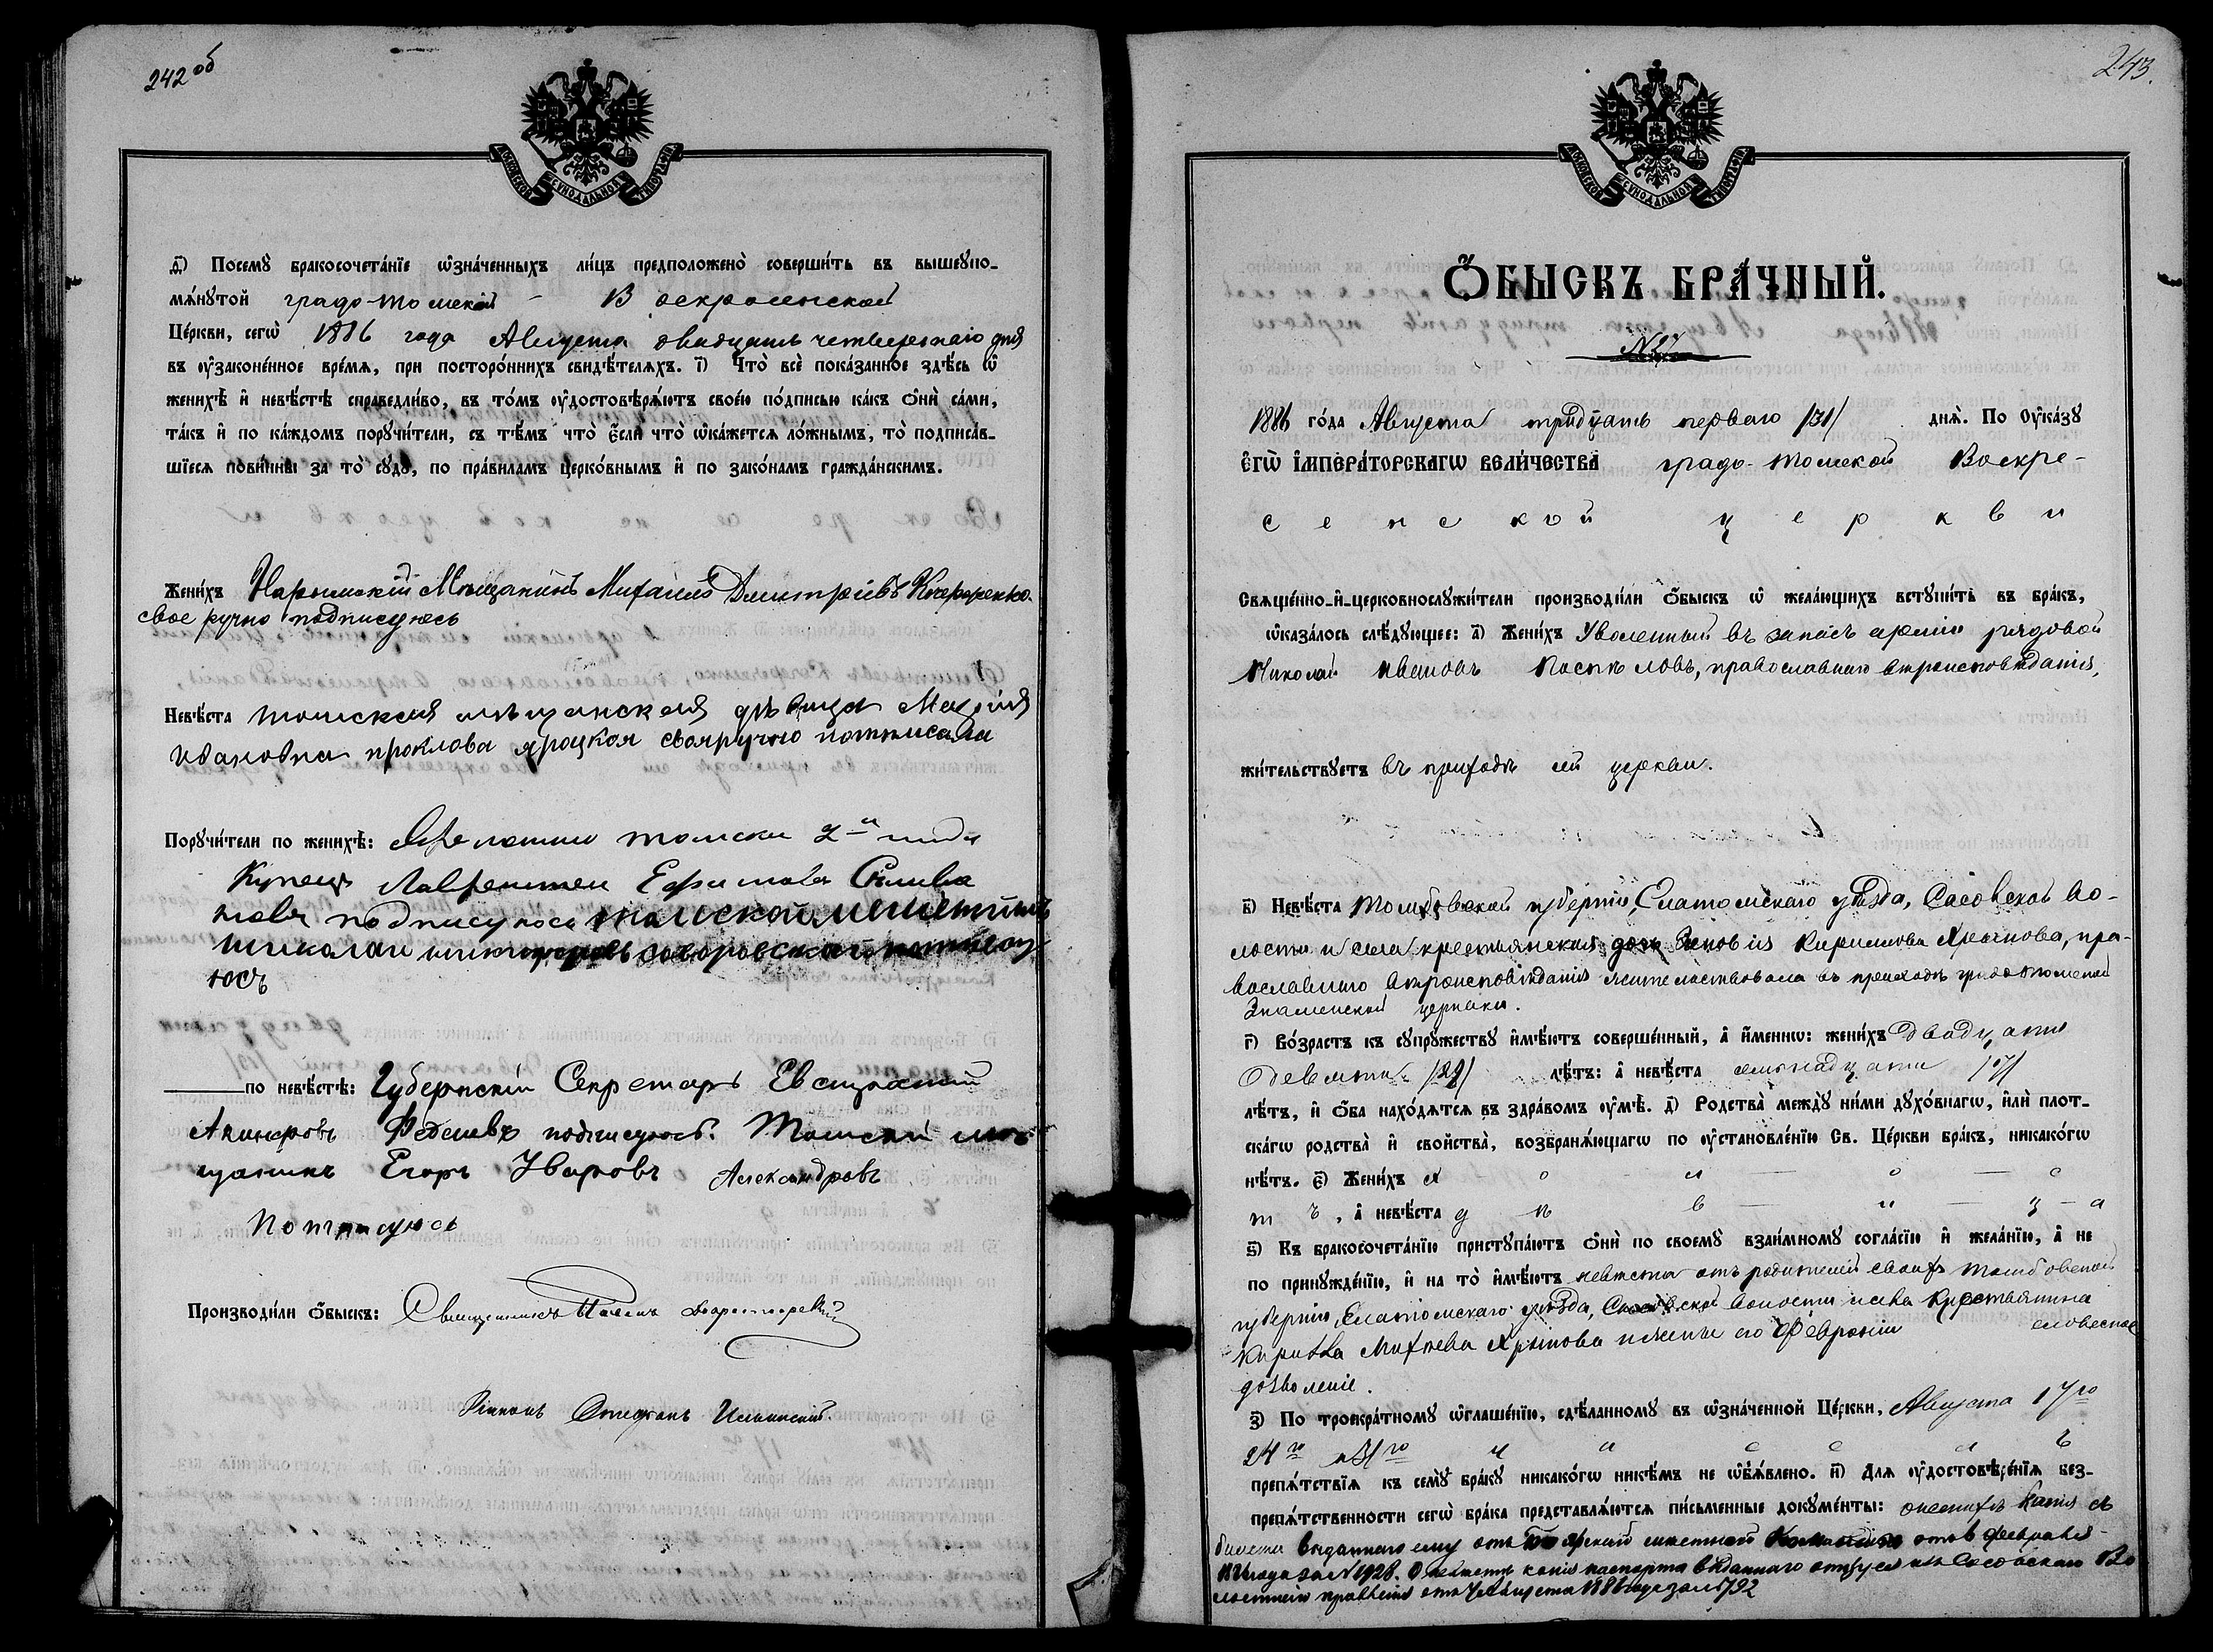 242 об
МОСКОВСКОЙ СѴНОДАЛЬНОЙ ТИПОГРАФІИ
д҃) Посемꙋ̀ бракосочета́нїе ѡ҆зна́ченныхъ ли́цъ предположено̀ соверши́ть въ вышеꙋпо-
мѧ́нꙋтой градо-томской - Воскресенской
Це́ркви, сегѡ̀ 1886 года Августа двадцать четвертаго дня
въ ᲂу҆зако́ненное вре́мѧ, при посторо́ннихъ свидѣ́телѧхъ. і҃) Что̀ всѐ пока́занное здѣ́сь ѡ҆
женихѣ̀ и҆ невѣ́стѣ справедли́во, въ то́мъ ᲂу҆достовѣрѧ́ютъ свое́ю по́дписью ка́къ ѻ҆нѝ са́ми,
та́къ и҆ по ка́ждомъ порꙋчи́тели, съ тѣ́мъ что̀ є҆́сли что̀ ѡ҆ка́жетсѧ ло́жнымъ, то̀ подписа́в-
шїесѧ пови́нны за то̀ сꙋдꙋ̀, по пра́виламъ церко́внымъ и҆ по зако́намъ гражда́нскимъ.
Жени́хъ Нарымский Мѣщанинъ Михаилъ Дмитріевъ
свое ручно подписуюсь
Невѣ́ста томская мѣщанская дѣвица Марія
Ивановна проклова яроцкоя свояручно
Порꙋчи́тели по женихѣ̀: томски 2-й
Купецъ Лаврентеи Ефимовъ
подписуюсь томской
николаи
юсъ
по невѣ́стѣ: Губернскій Секретарь Евстратій
подписуюсь. Томскій мѣ
щанинъ Егоръ Уваровъ Александровъ
Производи́ли ѻ҆́быскъ: Священникъ
Дьяконъ Стефанъ
243.
МОСКОВСКОЙ СѴНОДАЛЬНОЙ ТИПОГРАФІИ
Ѻ҆́БЫСКЪ БРА́ЧНЫЙ.
1886 го́да Августа тридцать перваго /31/ днѧ̀. По Оу҆ка́зꙋ
Є҆ГѠ̀ И҆МПЕРА́ТОРСКАГѠ ВЕЛИ́ЧЕСТВА градо-томской Воскре-
сенской церкви
Свѧще́нно-и҆-церковнослꙋжи́тели производи́ли ѻ҆́быскъ ѡ҆ жела́ющихъ встꙋпи́ть въ бра́къ,
ѡ҆каза́лось слѣ́дꙋющее: а҃) Жени́хъ Уволенный въ запасъ арміи рядовой
Николай Ивановъ православнаго вѣроисповѣданія,
жи́тельствꙋетъ въ приходѣ сей церкви.
в҃) Невѣ́ста Тамбовской губерніи, Елатомскаго уѣзда, Сасовской во-
лости и села крестьянская дочь Зиновія Кирилова Хрымова, пра-
вославнаго вѣроисповѣданія жительствовала въ приходѣ градо-томской
Знаменской церкви.
г҃) Во́зрастъ къ сꙋпрꙋ́жествꙋ и҆мѣ́ютъ соверше́нный, а҆ и҆́меннѡ: жени́хъ двадцати
девяти /29/ лѣ́тъ: а҆ невѣ́ста семнадцати /17/
лѣ́тъ, и҆ ѻ҆́ба нахо́дѧтсѧ въ здра́вомъ ᲂу҆мѣ̀. д҃) Родства̀ междꙋ̀ ни́ми дꙋхо́внагѡ, и҆лѝ плот-
ска́гѡ родства̀ и҆ свойства̀, возбранѧ́ющагѡ по ᲂу҆становле́нїю Св. Це́ркви бра́къ, никако́гѡ
нѣ́тъ. є҃) Жени́хъ х о л о с
т ъ, а҆ невѣ́ста д ѣ в и ц а
ѕ҃) Къ бракосочета́нїю пристꙋпа́ютъ ѻ҆нѝ по своемꙋ̀ взаи́мномꙋ согла́сїю и҆ жела́нїю, а҆ не
по принꙋжде́нїю, и҆ на то̀ и҆мѣ́ютъ невѣста отъ родителей своихъ Тамбовской
губерніи, Елатомскаго уѣзда, Сасовской волости села крестьянина
Кирилла Михѣева Хрымова и жены его Февроніи словесное
дозволеніе.
з҃) По троекра́тномꙋ ѡ҆глаше́нїю, сдѣ́ланномꙋ въ ѡ҆зна́ченной Це́ркви, Августа 17го
24го и 31го ч и с е л ъ
препѧ́тствїѧ къ семꙋ̀ бра́кꙋ никако́гѡ никѣ́мъ не ѡ҆б̾ѧ́влено. и҃) Длѧ ᲂу҆достовѣре́нїѧ без-
препѧ́тственности сегѡ̀ бра́ка представлѧ́ютсѧ пи́сьменные докꙋме́нты: о женихѣ копія съ
билета выданнаго ему отъ отъ 6 февраля
года за № 1928. О невѣстѣ копія паспорта выданнаго отцу ея изъ Сасовскаго Во
лостнаго правленія отъ 4 Августа 1886 года за № 792